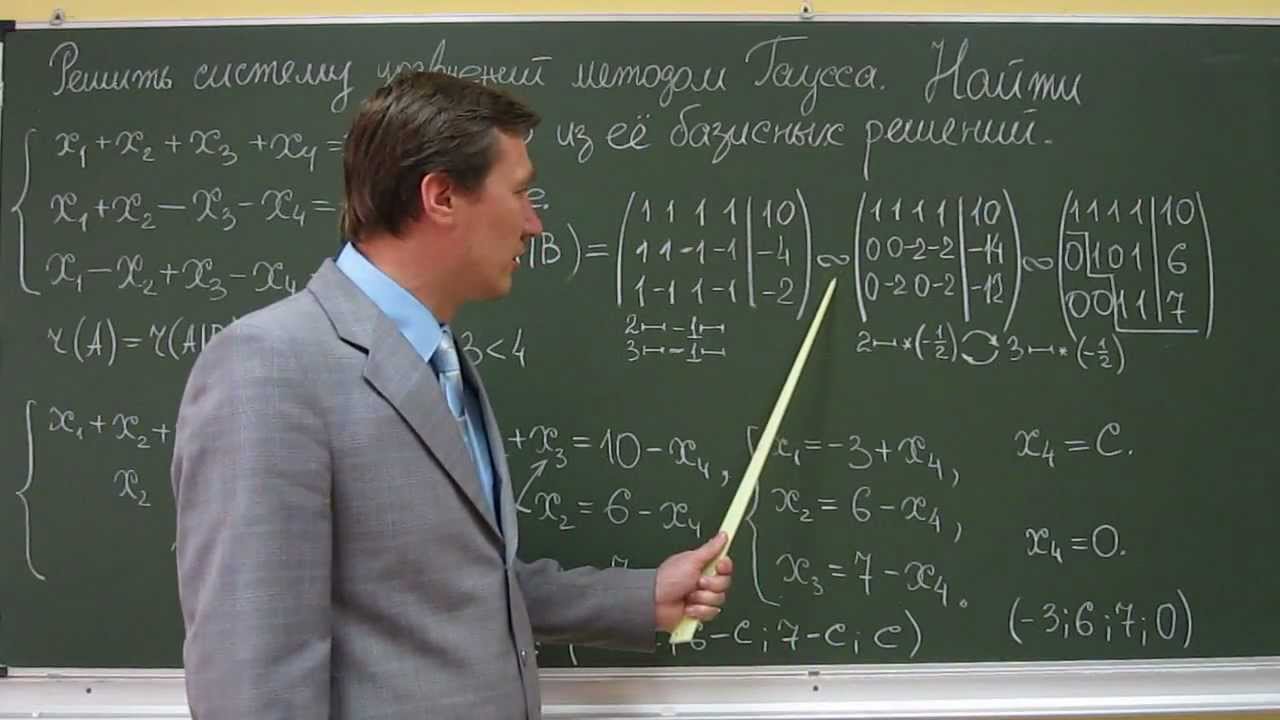 Решить систему уравнений методом Гаусса. Найти
из её базисных решений.
x₁+x₂+x₃+x₄=
x₁+x₂−x₃−x₄=
x₁−x₂+x₃−x₄
|B)=(1 1 1 1|10) ∾ (1 1 1 1|10) ∾ (1 1 1 1|10)
(1 1 -1 -1|-4) (0 0 -2 -2|-14) (0 1 0 1|6)
(1 -1 1 -1|-2) (0 -2 0 -2|-12) (0 0 1 1|7)
2↦-1↦
3↦-1↦
2↦*(-1/2) 3↦*(-1/2)
r(A)=r(A|B 3<4
x₁+x₂+ +x₃=10-x₄, x₁=-3+x₄, x₄=C.
x₂ x₂=6-x₄ x₂=6-x₄, x₄=0.
7 x₃=7-x₄.
;6-c;7-c;c) (-3;6;7;0)